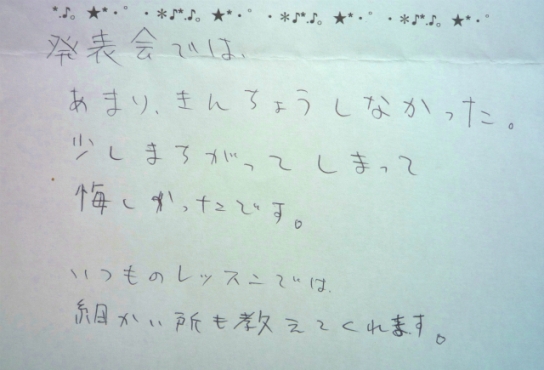 *.♪。★*・゜・*♪*.♪。★*・゜・*♪*.♪。★*・゜・*♪*.♪。★*・゜
発表会では、
あまり、きんちょうしなかった。
少しまちがってしまって
悔しかったです。
いつものレッスンでは、
細かい所も教えてくれます。